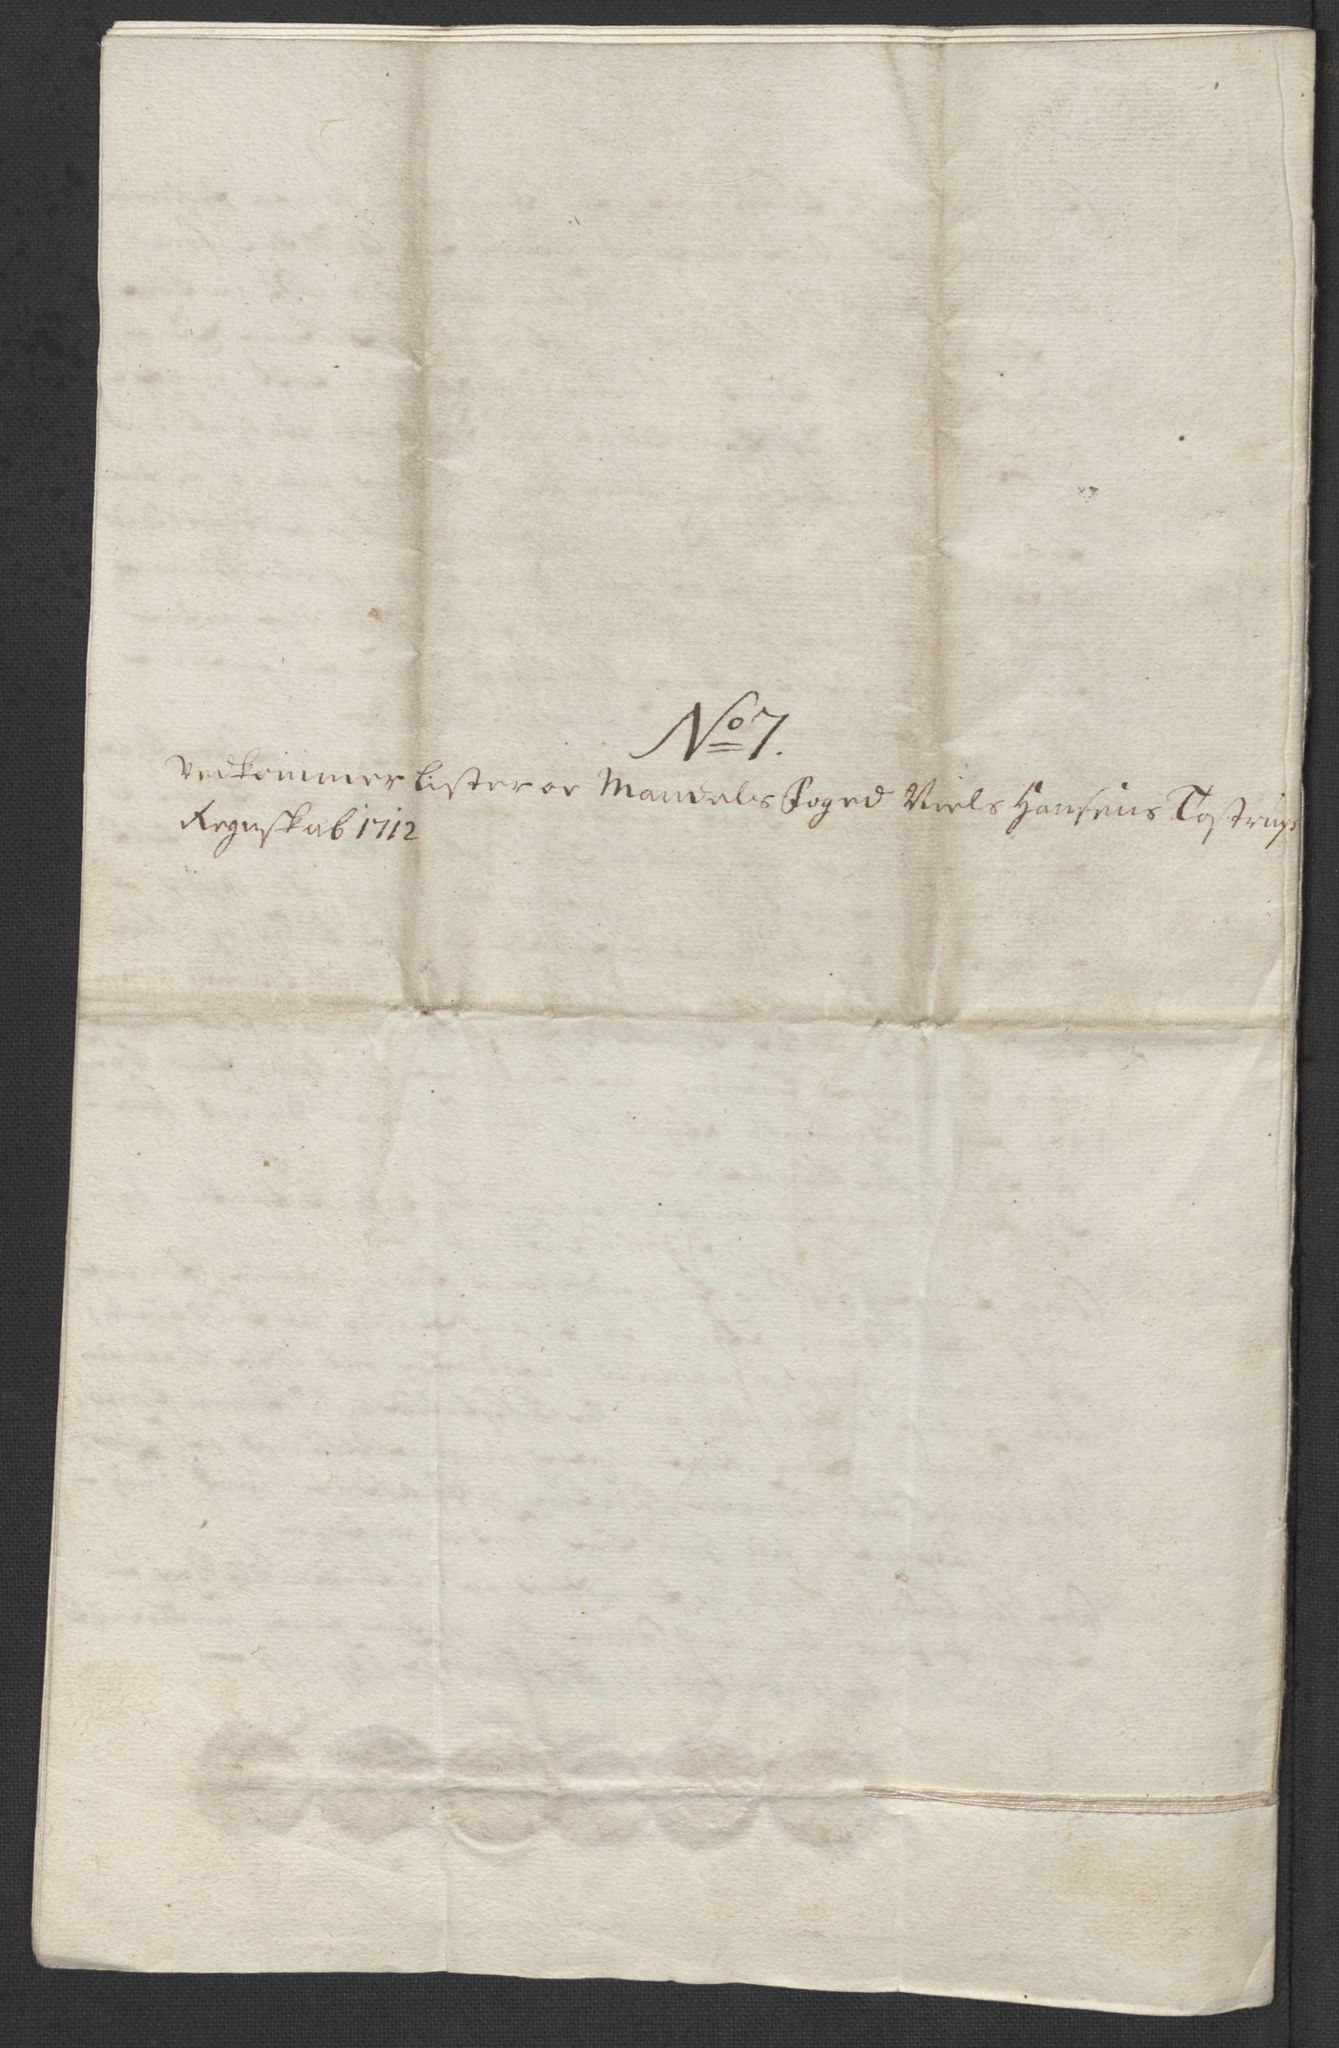 No 7.
Vedkommer Lister oc Mandals Foged Niels Hansens Tostrups
Regnskab 1712